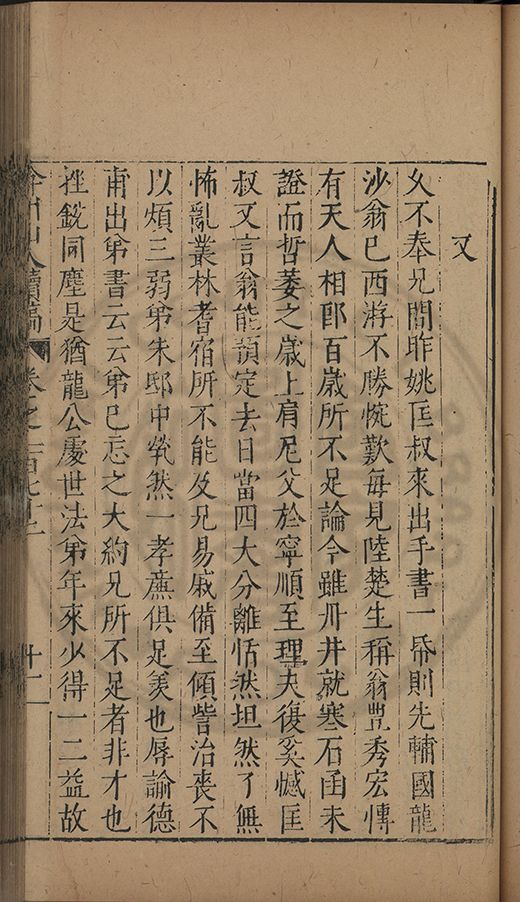 又
久不奉兄間昨姚匡叔來出手書一帋則先輔國龍
沙翁已西游不勝惋歎每見陸楚生稱翁豐秀宏慱
有天人相郎百歲所不足論今雖丹井就寒石函未
證而哲萎之歲上肩尼父於寧順至理夫復奚憾匡
叔又言翁能預定去日當四大分離恬然坦然了無
怖亂叢林耆宿所不能及兄易戚備至傾訾治喪不
以煩三弱弟朱邸中煢然一孝廉俱足羨也辱諭德
甫出弟書云云弟已忘之大約兄所不足者非才也
挫銳同塵是猶龍公處世法弟年來少得一二益故
弇州山人續稿
卷之一百
十二